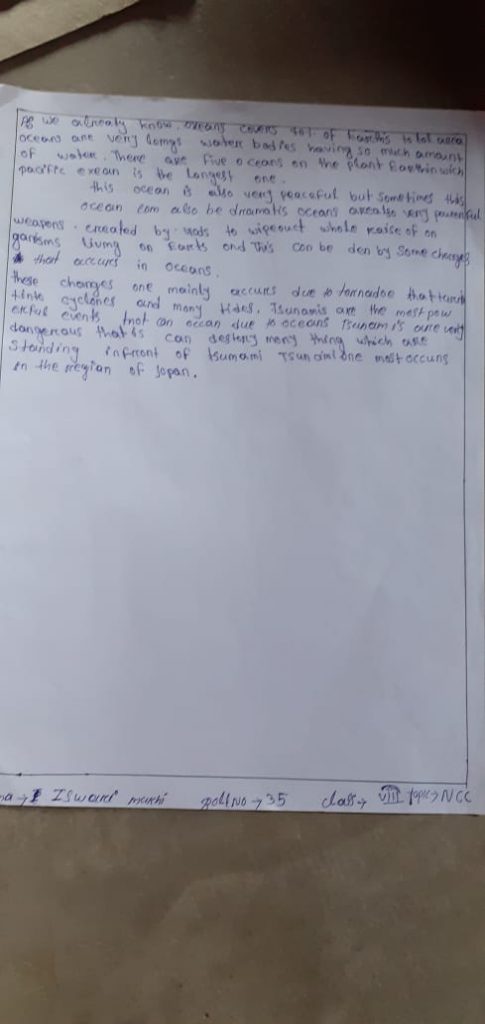 As we already know, oceans covers 70% of Earth's total area
oceans are very longs water bodies having so much amount
of water. There are five oceans on the plant Earth in wich
pacific ocean is the longest one.
this ocean is also very peaceful but sometimes this
ocean com also be dramatis oceans are also very powerful
weapons. created by gods to wipeout whole raise of on
ganisms living on Earts and This con be den by some changes
that occurs in oceans.
these changes one mainly occurs due to tornadoe that turn
tinto cyclones and many tides. Tsunamis are the most pow
erful events that on occan due to oceans Tsunamis are very
dangerous that is can destory meny thing which are
standing infront of tsumami Tsunami one most occuns
in the region of Jopan.
Iswari murhi Roll No → 35 class → VIII Topic → NCC